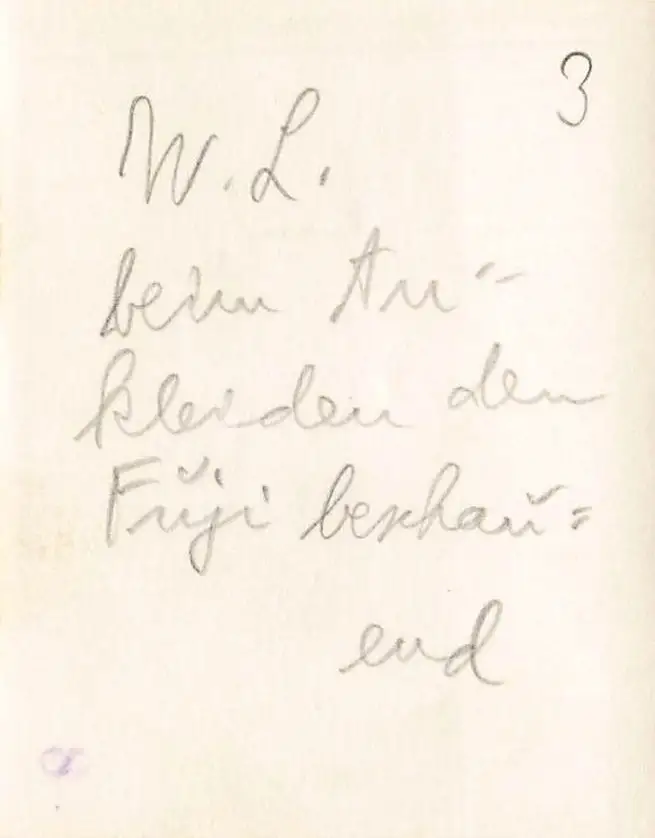 3
W. L.
beim An=
kleiden den
Fuji beschau=
end